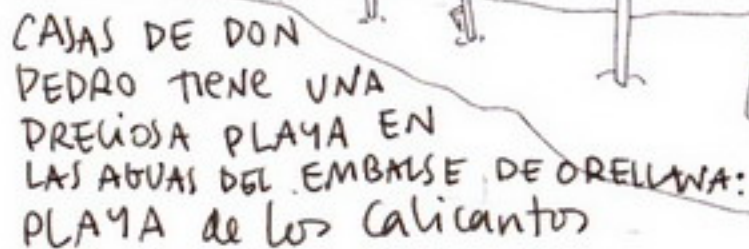 CASAS DE DON
PEDRO TIENE UNA
PRECIOSA PLAYA EN
LAS AGUAS DEL EMBALSE DE ORELLANA:
PLAYA de los Calicantos